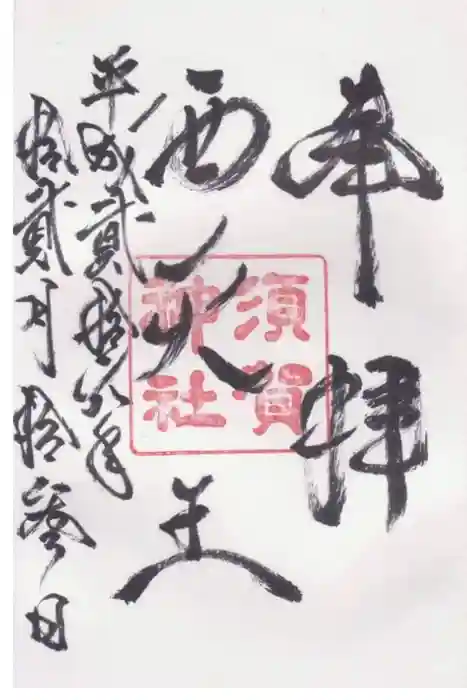 奉拝
西天王
須賀
神社
平成貳拾八年
拾貳月拾參日